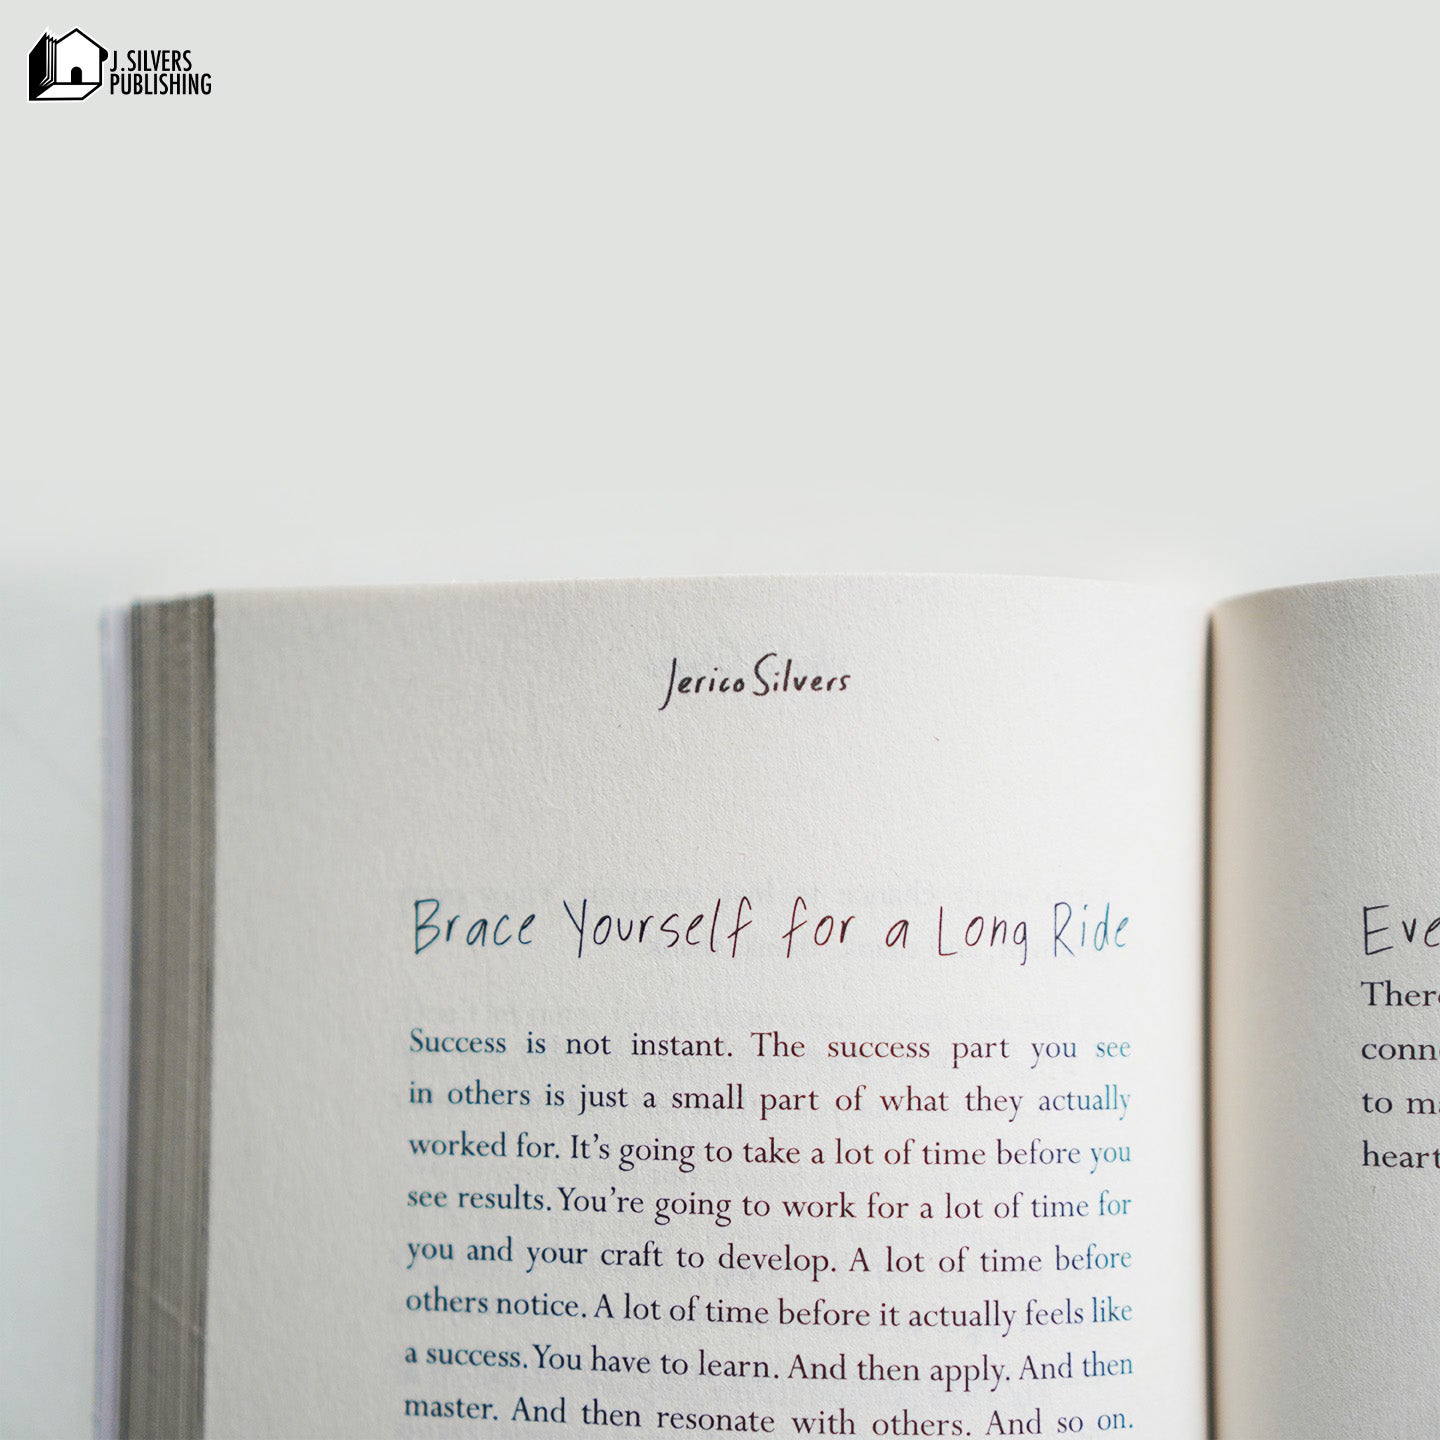 J.SILVERS
PUBLISHING
Jerico Silvers
Brace Yourself for a Long Ride
Success is not instant. The success part you see
in others is just a small part of what they actually
worked for. It’s going to take a lot of time before you
see results. You’re going to work for a lot of time for
you and your craft to develop. A lot of time before
others notice. A lot of time before it actually feels like
a success. You have to learn. And then apply. And then
master. And then resonate with others. And so on.
Eve
There
conn
to m
heart